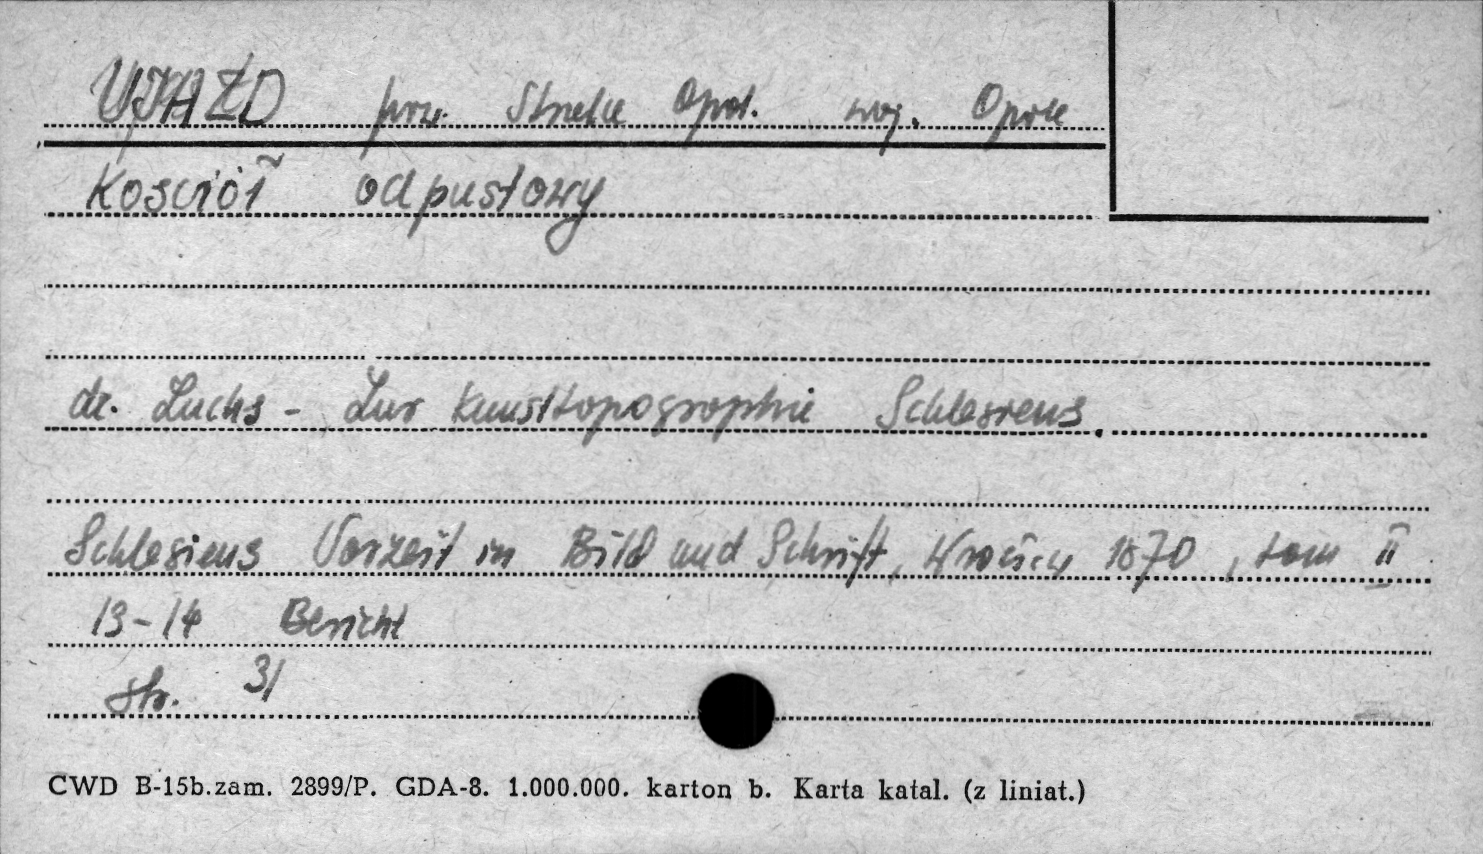 UJAZD pow. Strzelce Opol. woj. Opole
Kościół odpustowy
dr. Luchs - Zur Kunsttopographie Schlesiens.
Schlesiens Vorzeit in Bild und Schrift, Wrocław 1870, tom II
13-14 Bericht
str. 31
CWD B-15b.zam. 2899/P. GDA-8. 1.000.000. karton b. Karta katal. (z liniat.)